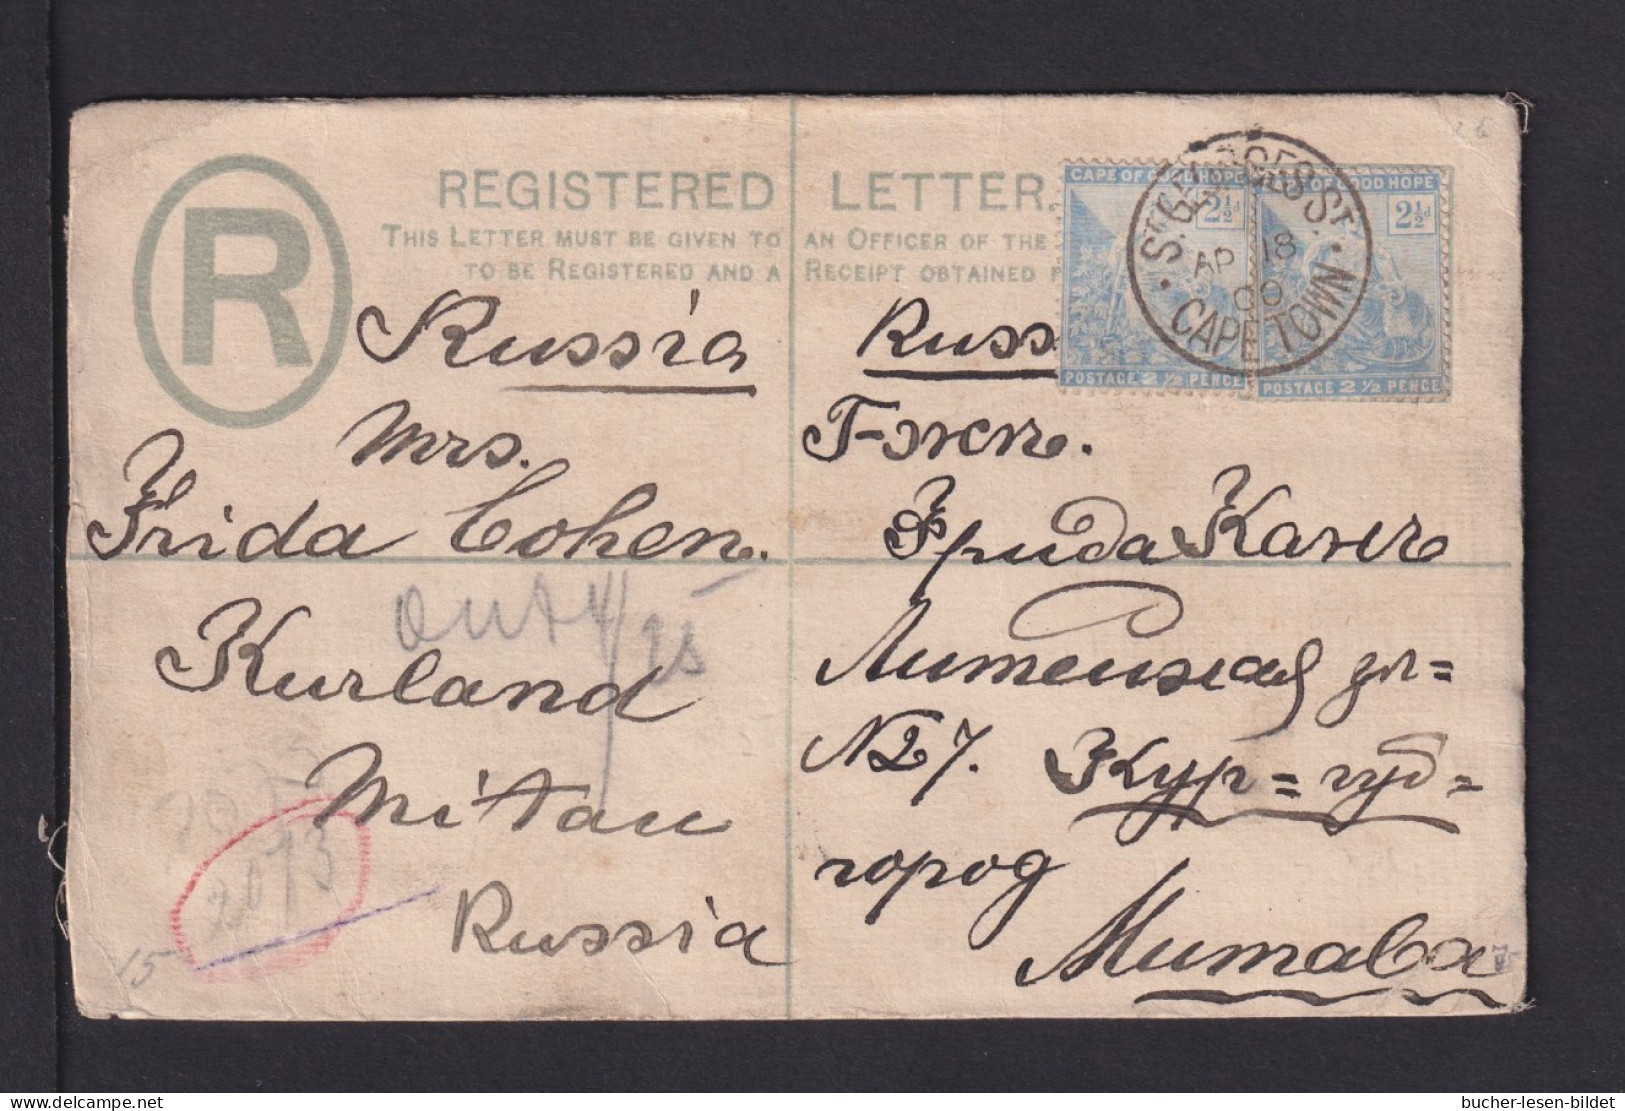 REGISTERED LETTER.
THIS LETTER MUST BE GIVEN TO AN OFFICER OF THE
TO BE REGISTERED AND A RECEIPT OBTAINED F
R
CAPE OF GOOD HOPE
2½d
POSTAGE 2½ PENCE
T OF GOOD HOPE
2½d
POSTAGE 2½ PENCE
ST. GEORGES ST.
AP 18
00
CAPE TOWN
Russia
Mrs.
Frida Cohen.
Kurland
Mitau
Russia
Russ
Г-жѣ.
Фрида Канъ
Литейная ул=
№ 7. Кур=губ=
город
Митава
2073
15
bucher-lesen-bildet